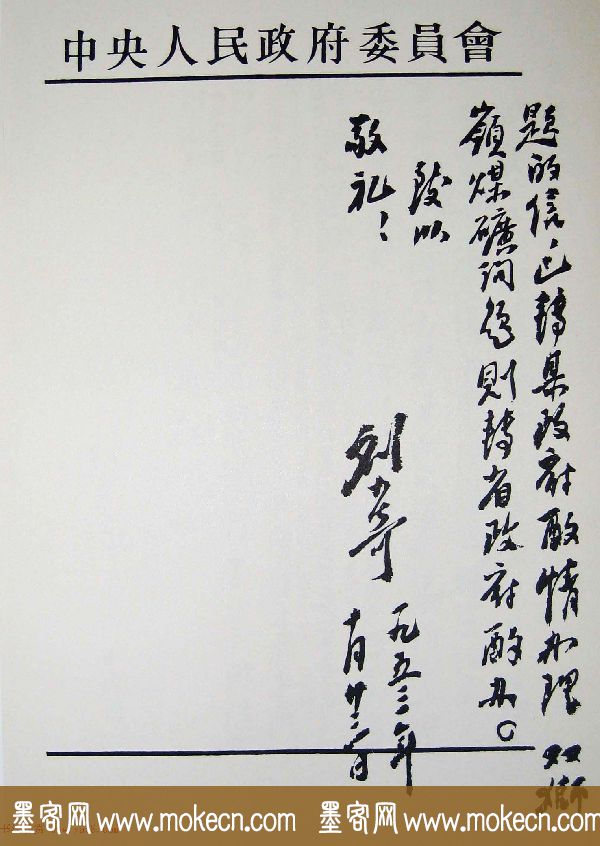 中央人民政府委員會
題的信，已轉县政府酌情办理 双獅
嶺煤礦问題則轉省政府酌办。
致以
敬礼！
刘少奇
一九五三年
十月廿三日
墨客网 www.mokecn.com 墨客网 www.mokecn.com